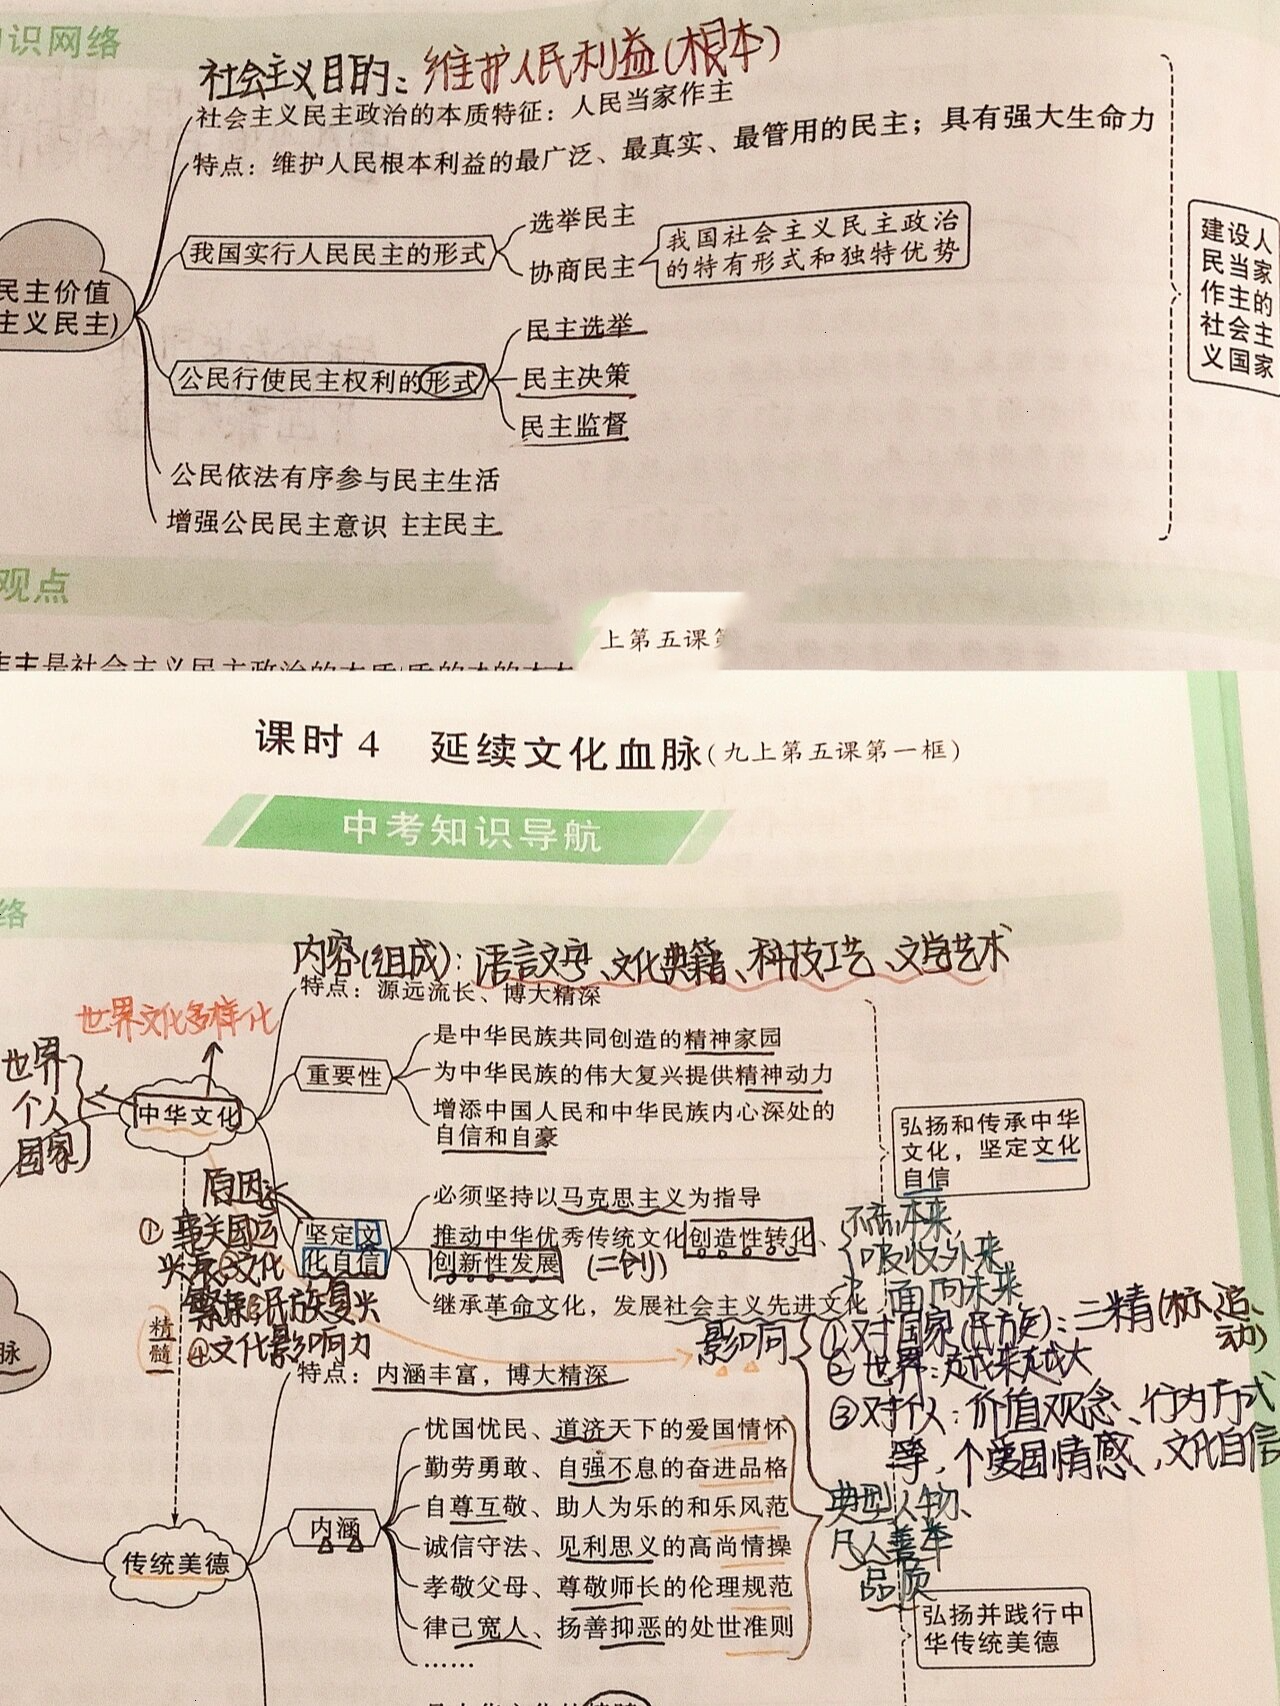 识网络
社会主义目的：维护人民利益(根本)
社会主义民主政治的本质特征：人民当家作主
特点：维护人民根本利益的最广泛、最真实、最管用的民主；具有强大生命力
我国实行人民民主的形式
选举民主
协商民主
我国社会主义民主政治
的特有形式和独特优势
民主价值
主义民主)
公民行使民主权利的形式
民主选举
民主决策
民主监督
公民依法有序参与民主生活
增强公民民主意识 主主民主
建设人
民当家
作主的
社会主
义国家
观点
上第五课第
课时4 延续文化血脉(九上第五课第一框)
中考知识导航
络
内容(组成)：语言文字、文化典籍、科技工艺、文学艺术
特点：源远流长、博大精深
世界文化多样化
世界
个人
国家
中华文化
重要性
是中华民族共同创造的精神家园
为中华民族的伟大复兴提供精神动力
增添中国人民和中华民族内心深处的
自信和自豪
弘扬和传承中华
文化，坚定文化
自信
原因
①事关国运
兴衰②文化
繁荣③民族复兴
④文化影响力
坚定文
化自信
必须坚持以马克思主义为指导
推动中华优秀传统文化创造性转化、
创新性发展 (二创)
继承革命文化，发展社会主义先进文化
不忘本来
吸收外来
面向未来
精
髓
脉
影响
①对国家(民族)：三精(标、追、
动)
②世界：越来越大
③对个人：价值观念、行为方式
等，个爱国情感，文化自信
特点：内涵丰富，博大精深
传统美德
内涵
忧国忧民、道济天下的爱国情怀
勤劳勇敢、自强不息的奋进品格
自尊互敬、助人为乐的和乐风范
诚信守法、见利思义的高尚情操
孝敬父母、尊敬师长的伦理规范
律己宽人、扬善抑恶的处世准则
……
典型人物、
凡人善举
品质
弘扬并践行中
华传统美德